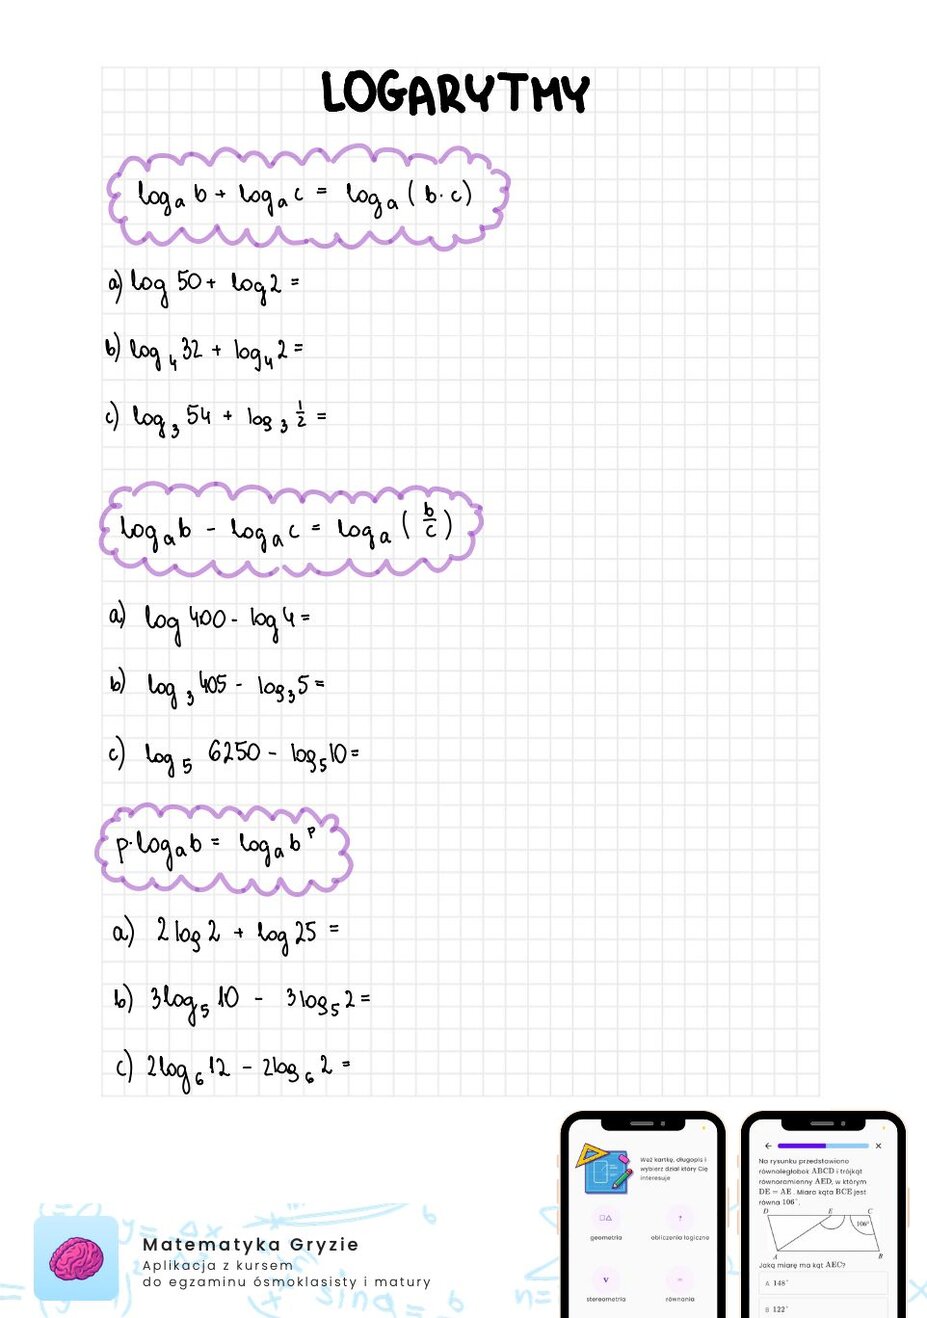 LOGARYTMY
logₐ b + logₐ c = logₐ ( b · c )
a) log 50 + log 2 =
b) log₄ 32 + log₄ 2 =
c) log₃ 54 + log₃ 1/2 =
logₐ b - logₐ c = logₐ ( b/c )
a) log 400 - log 4 =
b) log₃ 405 - log₃ 5 =
c) log₅ 6250 - log₅ 10 =
p · logₐ b = logₐ bᵖ
a) 2 log 2 + log 25 =
b) 3 log₅ 10 - 3 log₅ 2 =
c) 2 log₆ 12 - 2 log₆ 2 =
Matematyka Gryzie
Aplikacja z kursem
do egzaminu ósmoklasisty i matury
sin α = 6
Weź kartkę, długopis i
wybierz dział który Cię
interesuje
geometria
obliczenia logiczne
stereometria
równania
Na rysunku przedstawiono
równoległobok ABCD i trójkąt
równoramienny AED, w którym
DE = AE. Miara kąta BCE jest
równa 106°.
D E C
106°
A B
Jaką miarę ma kąt AEC?
A 148°
B 122°